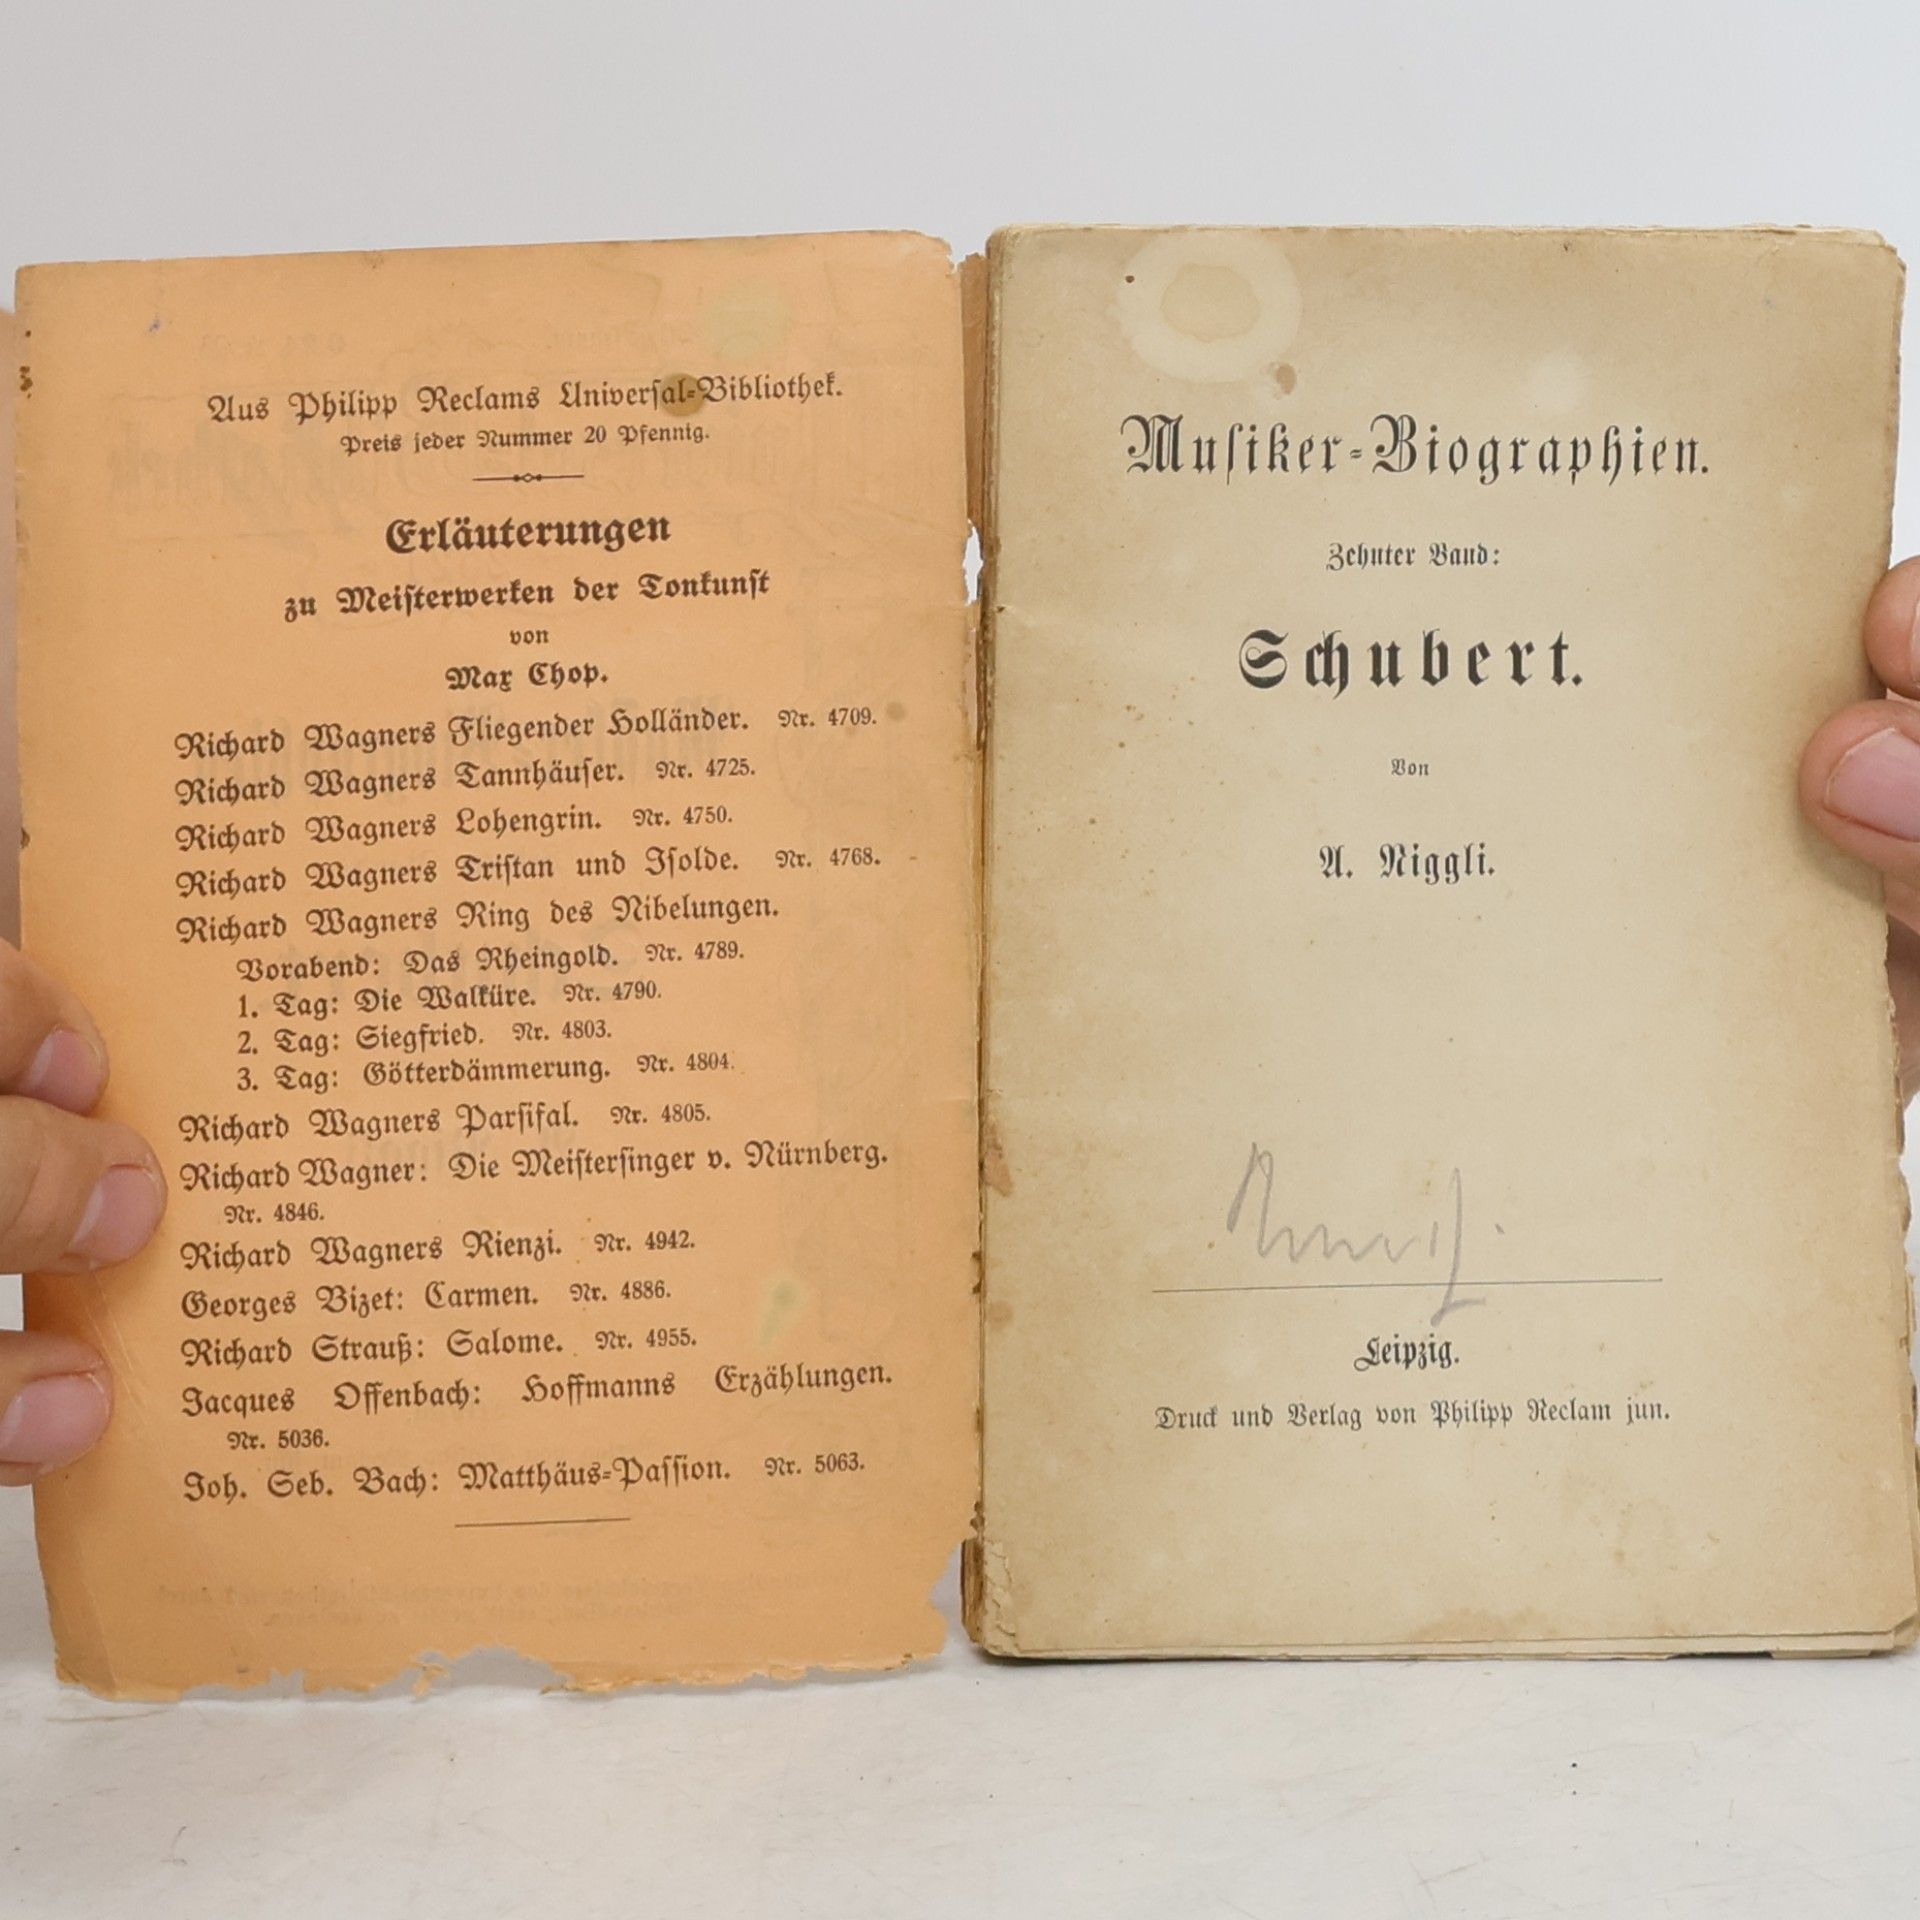 Aus Philipp Reclams Universal-Bibliothek.
Preis jeder Nummer 20 Pfennig.
Erläuterungen
zu Meisterwerken der Tonkunst
von
Max Chop.
Richard Wagners Fliegender Holländer. Nr. 4709.
Richard Wagners Tannhäuser. Nr. 4725.
Richard Wagners Lohengrin. Nr. 4750.
Richard Wagners Tristan und Isolde. Nr. 4768.
Richard Wagners Ring des Nibelungen.
Vorabend: Das Rheingold. Nr. 4789.
1. Tag: Die Walküre. Nr. 4790.
2. Tag: Siegfried. Nr. 4803.
3. Tag: Götterdämmerung. Nr. 4804.
Richard Wagners Parsifal. Nr. 4805.
Richard Wagner: Die Meistersinger v. Nürnberg.
Nr. 4846.
Richard Wagners Rienzi. Nr. 4942.
Georges Bizet: Carmen. Nr. 4886.
Richard Strauß: Salome. Nr. 4955.
Jacques Offenbach: Hoffmanns Erzählungen.
Nr. 5036.
Joh. Seb. Bach: Matthäus-Passion. Nr. 5063.
Musiker-Biographien.
Zehnter Band:
Schubert.
Von
A. Niggli.
Leipzig.
Druck und Verlag von Philipp Reclam jun.